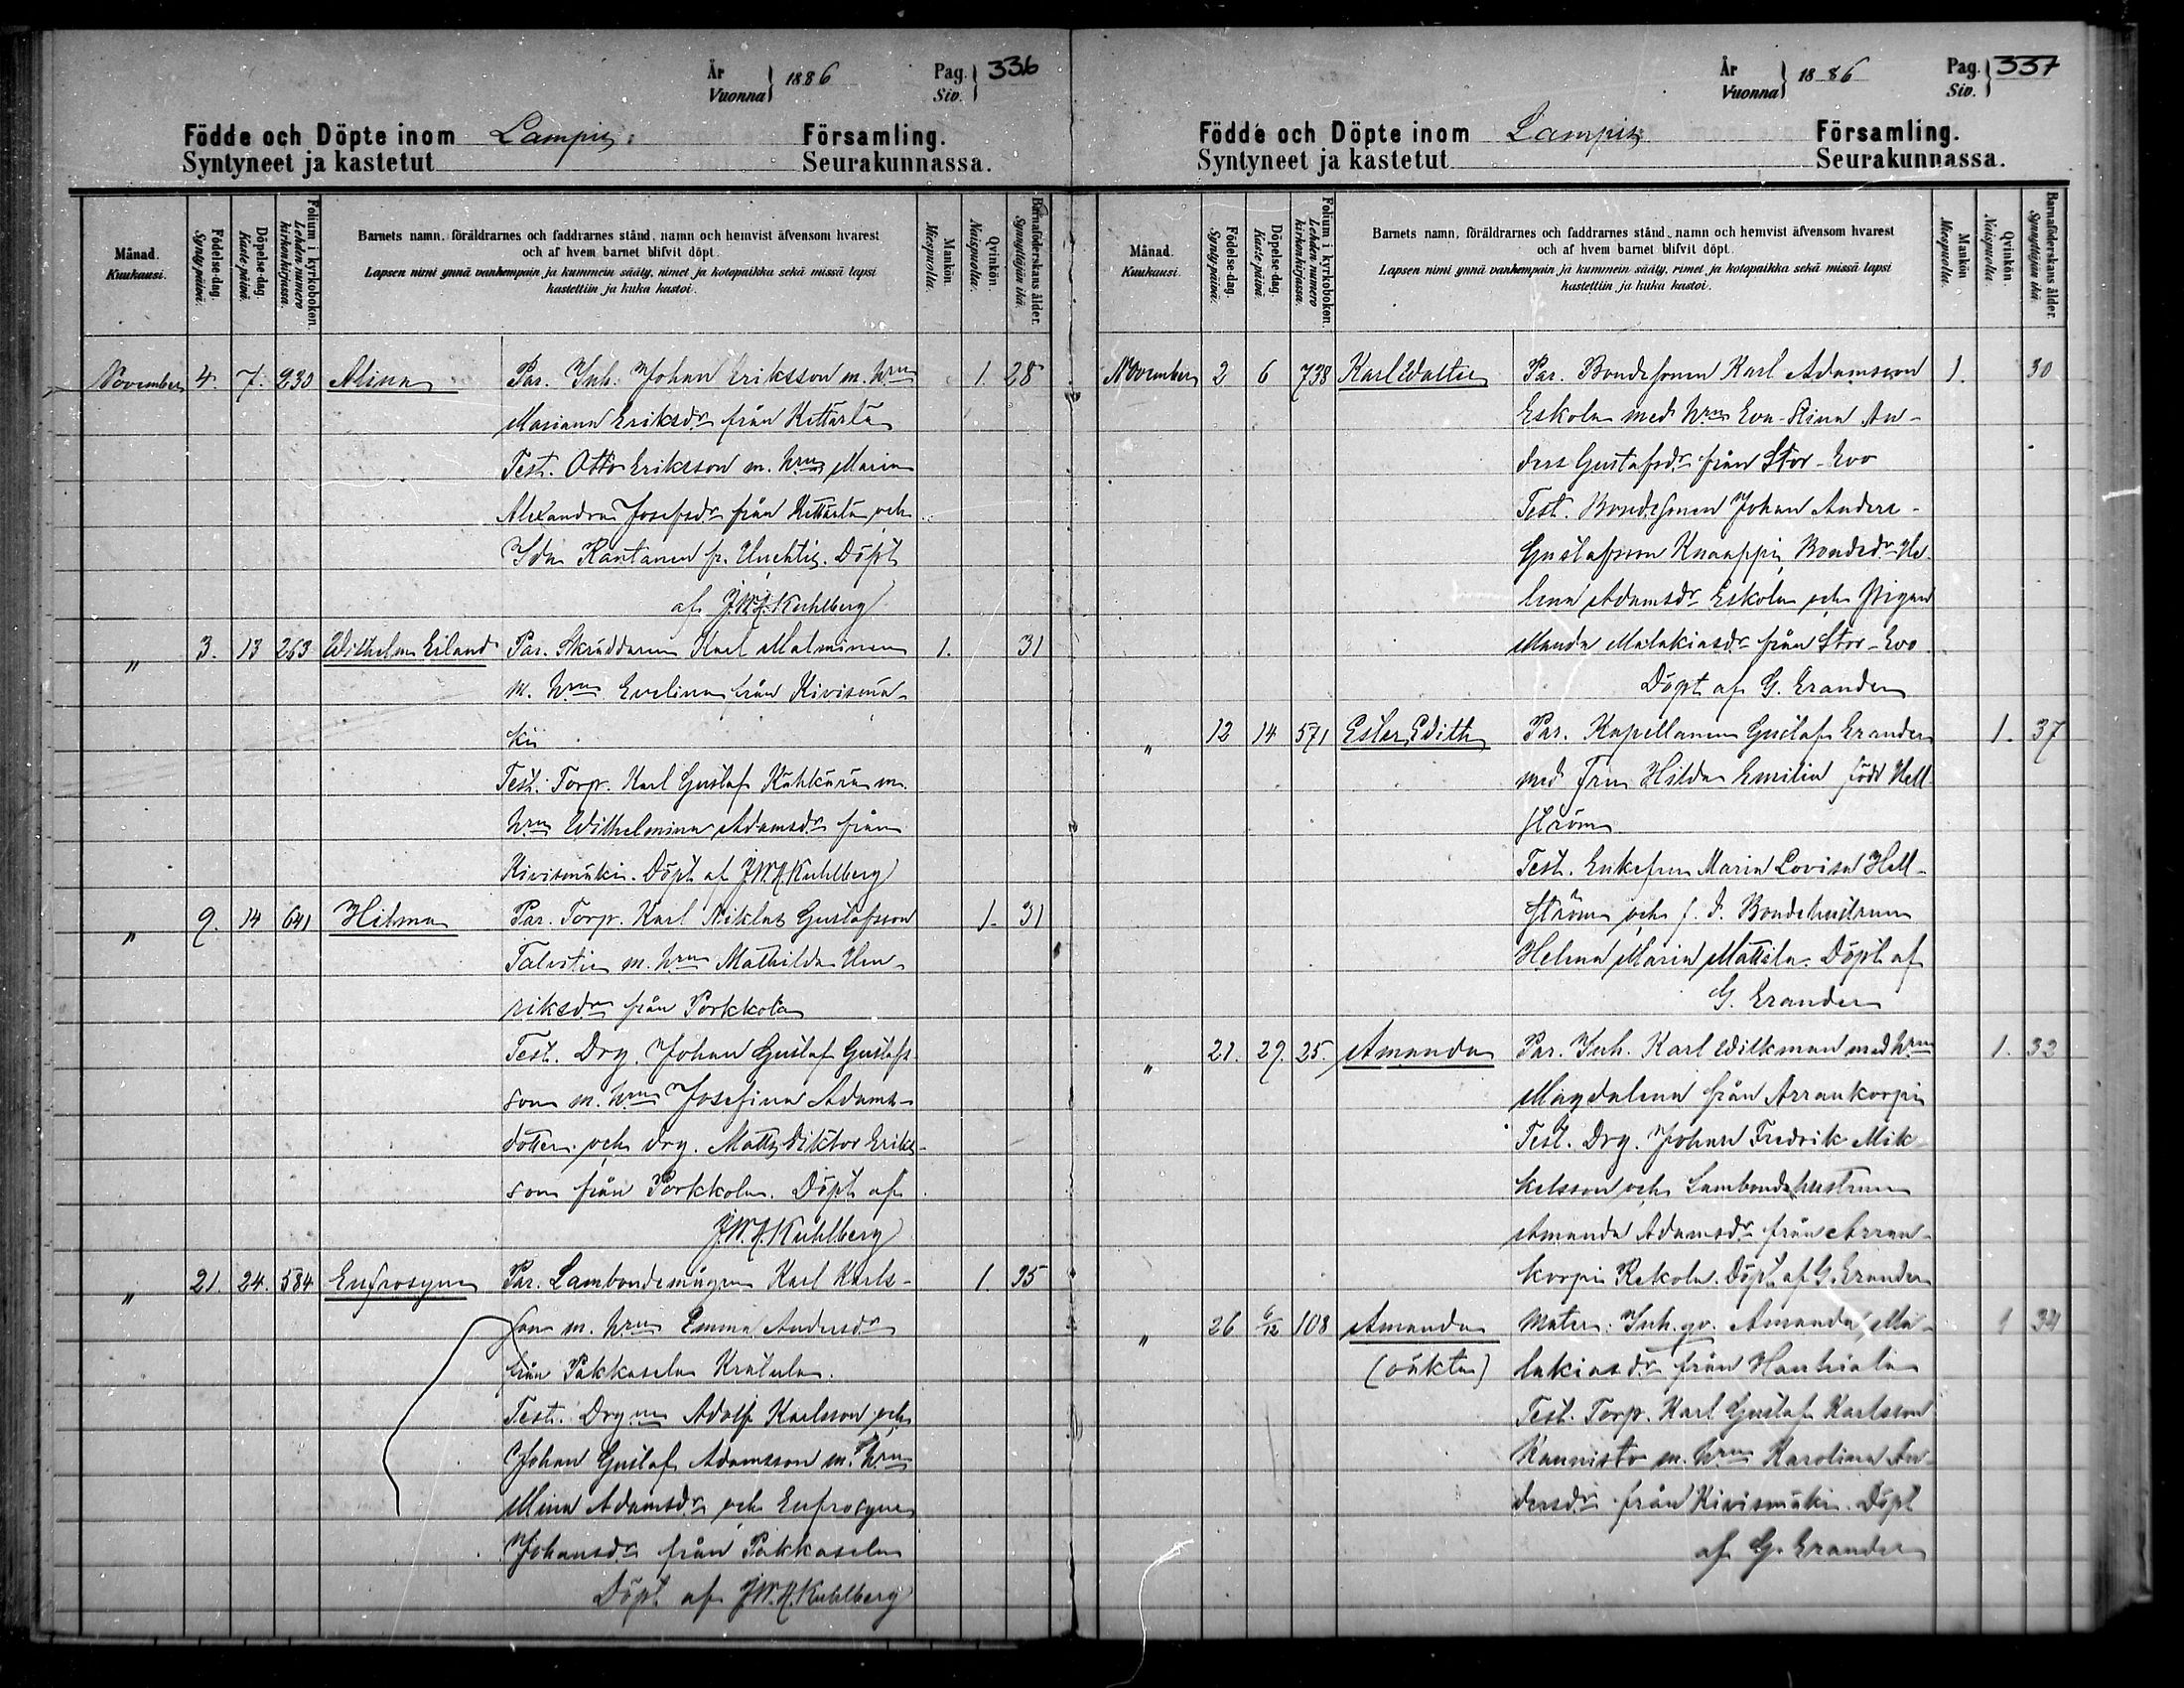 År
Vuonna } 1886
Pag.
Siv. } 336
Födde och Döpte inom Lampis Församling.
Syntyneet ja kastetut Seurakunnassa.
Månad.
Kuukausi.
Födelse-dag.
Synty-päivä.
Döpelse-dag.
Kaste-päivä.
Folium i kyrkoboken.
Lehden numero
kirkonkirjassa.
Barnets namn, föräldrarnes och faddrarnes stånd, namn och hemvist äfvensom hvarest
och af hvem barnet blifvit döpt.
Lapsen nimi ynnä vanhempain ja kummein sääty, nimet ja kotopaikka sekä missä lapsi
kastettiin ja kuka kastoi.
Mankön.
Miespuolia.
Qvinkön.
Naispuolia.
Barnaföderskans ålder.
Synnyttäjän ikä.
November 4. 7. 230 Alina Par. Inh. Johan Eriksson m. hru 1. 28
Mariana Eriksdr från Kettärlä
Test. Otto Eriksson m. hru Maria
Alexandra Josefsdr från Kettärlä och
Ida Rantanen fr. Uuchtis. Döpt
af J.W.A. Kuhlberg
" 3. 13 263 Wilhelm Erland Par. Skräddaren Karl Malminen 1. 31
m. hru Evelina från Kivismä-
ki
Test. Torp. Karl Gustaf Kähkärä m.
hru Wilhelmina Adamsdr från
Kivismäki. Döpt af J.W.A. Kuhlberg
" 9. 14 641 Hilma Par. Torp. Karl Niklas Gustafsson 1. 31
Talvitie m. hru Mathilda Hen-
riksdr från Porkkola
Test. Drg. Johan Gustaf Gustafs-
son m. hru Josefina Adams-
dotter och drg. Matts Viktor Eriks-
son från Porkkola. Döpt af
J.W.A. Kuhlberg
" 21. 24. 584 Eufrosyne Par. Lambondemågen Karl Karls- 1. 35
son m. hru Emma Andersdr
från Pakkasela Krätula.
Test. Drgne Adolf Karlsson och
Johan Gustaf Adamsson m. hru
Mina Adamsdr och Eufrosyne
Johansdr från Pakkasela
Döpt af J.W.A. Kuhlberg
År
Vuonna } 1886
Pag.
Siv. } 337
Födde och Döpte inom Lampis Församling.
Syntyneet ja kastetut Seurakunnassa.
Månad.
Kuukausi.
Födelse-dag.
Synty-päivä.
Döpelse-dag.
Kaste-päivä.
Folium i kyrkoboken.
Lehden numero
kirkonkirjassa.
Barnets namn, föräldrarnes och faddrarnes stånd, namn och hemvist äfvensom hvarest
och af hvem barnet blifvit döpt.
Lapsen nimi ynnä vanhempain ja kummein sääty, nimet ja kotopaikka sekä missä lapsi
kastettiin ja kuka kastoi.
Mankön
Miespuolia.
Qvinkön.
Naispuolia.
Barnaföderskans ålder.
Synnyttäjän ikä.
November 2 6 738 Karl Walter Par. Bondesonen Karl Adamsson 1. 30
Eskola med hru Eva Stina An-
ders Gustafsdr från Stor-Evo
Test. Bondesonen Johan Anders-
Gustafsson Knaappi, Bondedr He-
lena Adamsdr Eskola och Pigan
Manda Malakiasdr från Stor-Evo
Döpt af G. Erander
" 12 14 571 Ester Edith Par. Kapellanen Gustaf Erander 1. 37
med Fru Hilda Emilia född Hell-
ström
Test. Enkefru Maria Lovisa Hell-
ström och f. d. Bondehustrun
Helena Maria Mattila. Döpt af
G. Erander
" 21. 29. 25. Amanda Par. Inh. Karl Wilkman med hru 1. 32
Magdalena från Arrankorpi
Test. Drg. Johan Fredrik Mik-
kelsson och Lambondehustrun
Amanda Adamsdr från Arran-
korpi Rekola. Döpt af G. Erander
" 26 6/12 108 Amanda Mater. Inh. qv. Amanda Ma- 1 34
(oäkta) lakiasdr från Hauhiala
Test. Torp. Karl Gustaf Karlsson
Kannisto m. hru Karolina An-
dersdr från Kivismäki. Döpt
af G. Erander